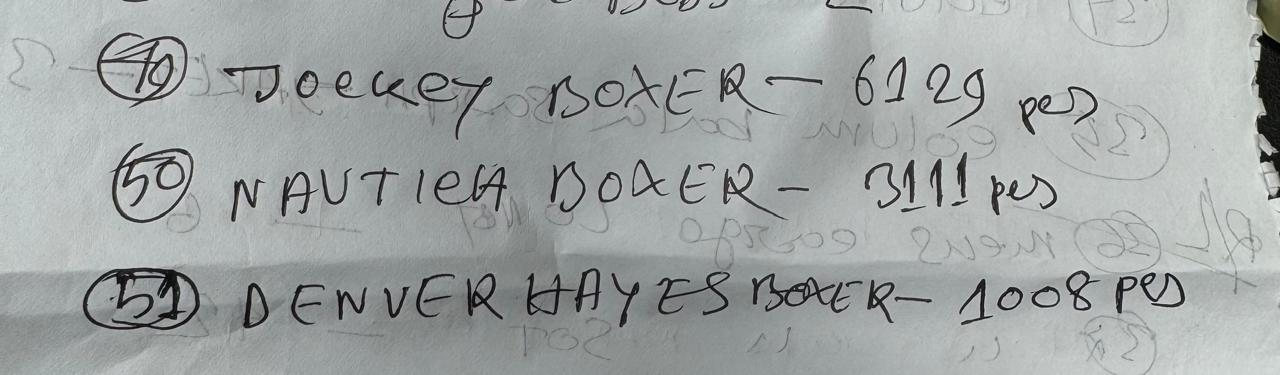 49 JOCKEY BOXER - 6129 pcs
50 NAUTICA BOXER - 3111 pcs
51 DENVER HAYES BOXER - 1008 pcs